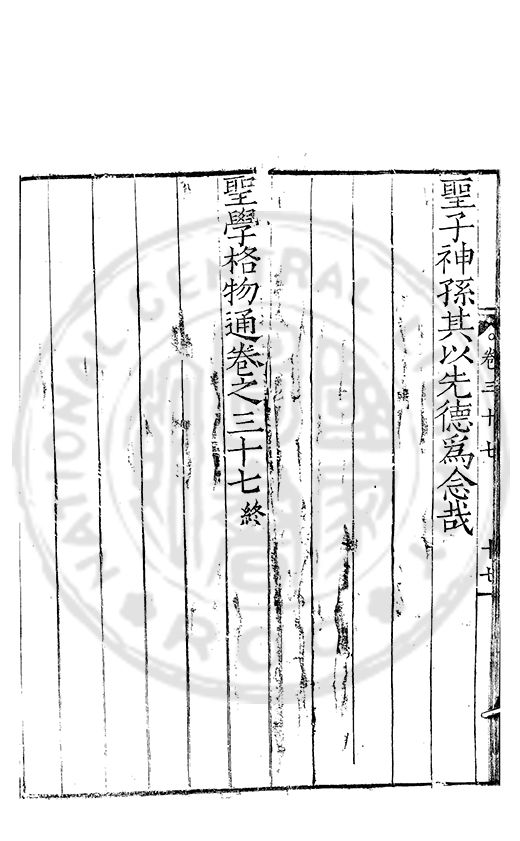 聖子神孫其以先德爲念哉
聖學格物通卷之三十七終
卷三十七
十七
NATIONAL CENTRAL LIBRARY